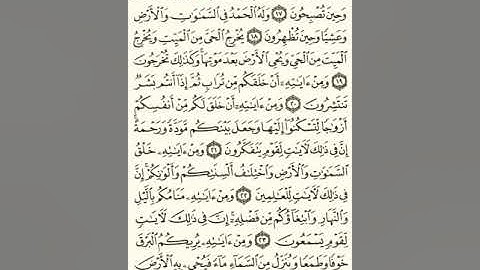 وَحِينَ تُصْبِحُونَ ١٧ وَلَهُ ٱلْحَمْدُ فِى ٱلسَّمَٰوَٰتِ وَٱلْأَرْضِ
وَعَشِيًّا وَحِينَ تُظْهِرُونَ ١٨ يُخْرِجُ ٱلْحَىَّ مِنَ ٱلْمَيِّتِ وَيُخْرِجُ
ٱلْمَيِّتَ مِنَ ٱلْحَىِّ وَيُحْىِ ٱلْأَرْضَ بَعْدَ مَوْتِهَا وَكَذَٰلِكَ تُخْرَجُونَ
١٩ وَمِنْ ءَايَٰتِهِۦٓ أَنْ خَلَقَكُم مِّن تُرَابٍ ثُمَّ إِذَآ أَنتُم بَشَرٌ
تَنتَشِرُونَ ٢٠ وَمِنْ ءَايَٰتِهِۦٓ أَنْ خَلَقَ لَكُم مِّنْ أَنفُسِكُمْ
أَزْوَٰجًا لِّتَسْكُنُوٓا۟ إِلَيْهَا وَجَعَلَ بَيْنَكُم مَّوَدَّةً وَرَحْمَةً
إِنَّ فِى ذَٰلِكَ لَءَايَٰتٍ لِّقَوْمٍ يَتَفَكَّرُونَ ٢١ وَمِنْ ءَايَٰتِهِۦ خَلْقُ
ٱلسَّمَٰوَٰتِ وَٱلْأَرْضِ وَٱخْتِلَٰفُ أَلْسِنَتِكُمْ وَأَلْوَٰنِكُمْ إِنَّ
فِى ذَٰلِكَ لَءَايَٰتٍ لِّلْعَٰلِمِينَ ٢٢ وَمِنْ ءَايَٰتِهِۦ مَنَامُكُم بِٱلَّيْلِ
وَٱلنَّهَارِ وَٱبْتِغَآؤُكُم مِّن فَضْلِهِۦٓ إِنَّ فِى ذَٰلِكَ لَءَايَٰتٍ
لِّقَوْمٍ يَسْمَعُونَ ٢٣ وَمِنْ ءَايَٰتِهِۦ يُرِيكُمُ ٱلْبَرْقَ
خَوْفًا وَطَمَعًا وَيُنَزِّلُ مِنَ ٱلسَّمَآءِ مَآءً فَيُحْىِۦ بِهِ ٱلْأَرْضَ